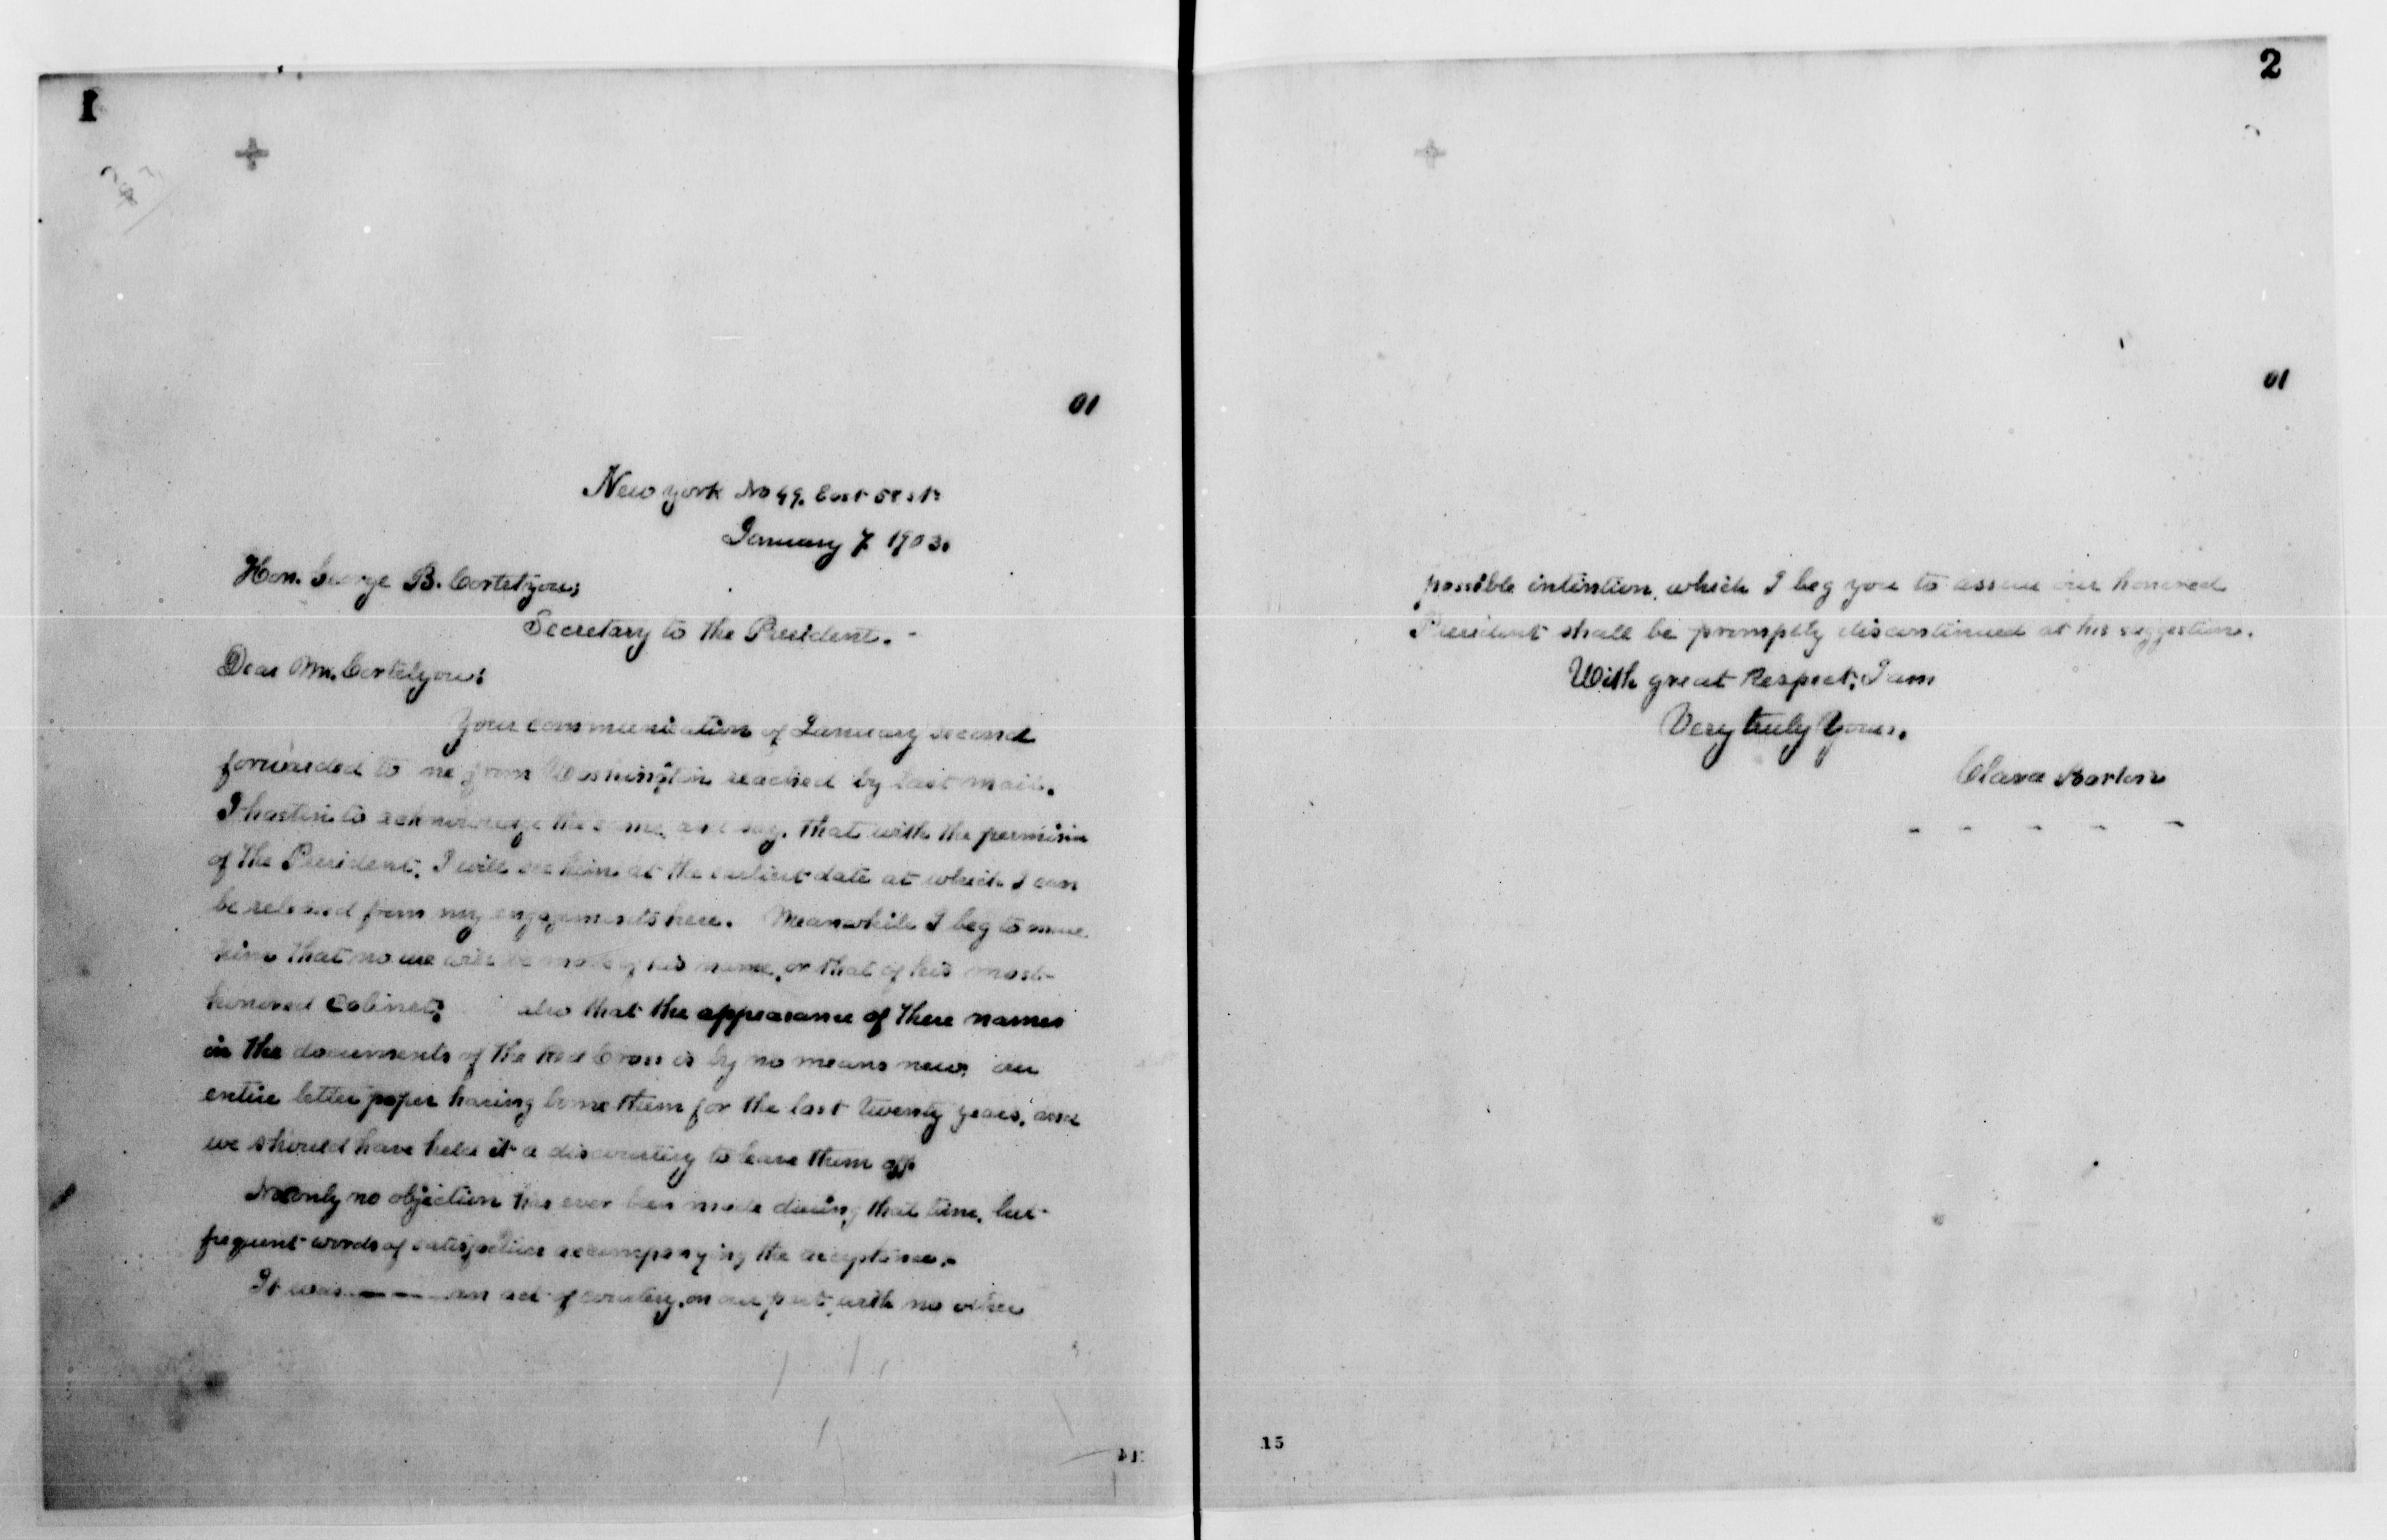 1
01
New York No 49. East 58 st.
January 7. 1903.
Hon. George B. Cortelyou;
Secretary to the President. -
Dear Mr. Cortelyou:
Your communication of January second
forwarded to me from Washington reached by last mail.
I hasten to acknowledge the same, and say, that with the permision
of the President, I will see him at the earliest date at which I can
be released from my engagements here. Meanwhile I beg to
him that no use will be made of his name, or that of his most
honored Cabinet; also that the appearance of these names
in the documents of the Red Cross is by no means new, our
entire letter paper having borne them for the last twenty years, and
we should have held it a discourtesy to leave them off
Not only no objection has ever been made during that time, but
frequent words of satisfaction accompanying the acceptance.
It was — — — an act of courtesy, on our part, with no other
14
2
01
possible intention, which I beg you to assure our honored
President shall be promptly discontinued at his suggestion.
With great Respect, I am
Very truly Yours,
Clara Barton
- - - - -
15